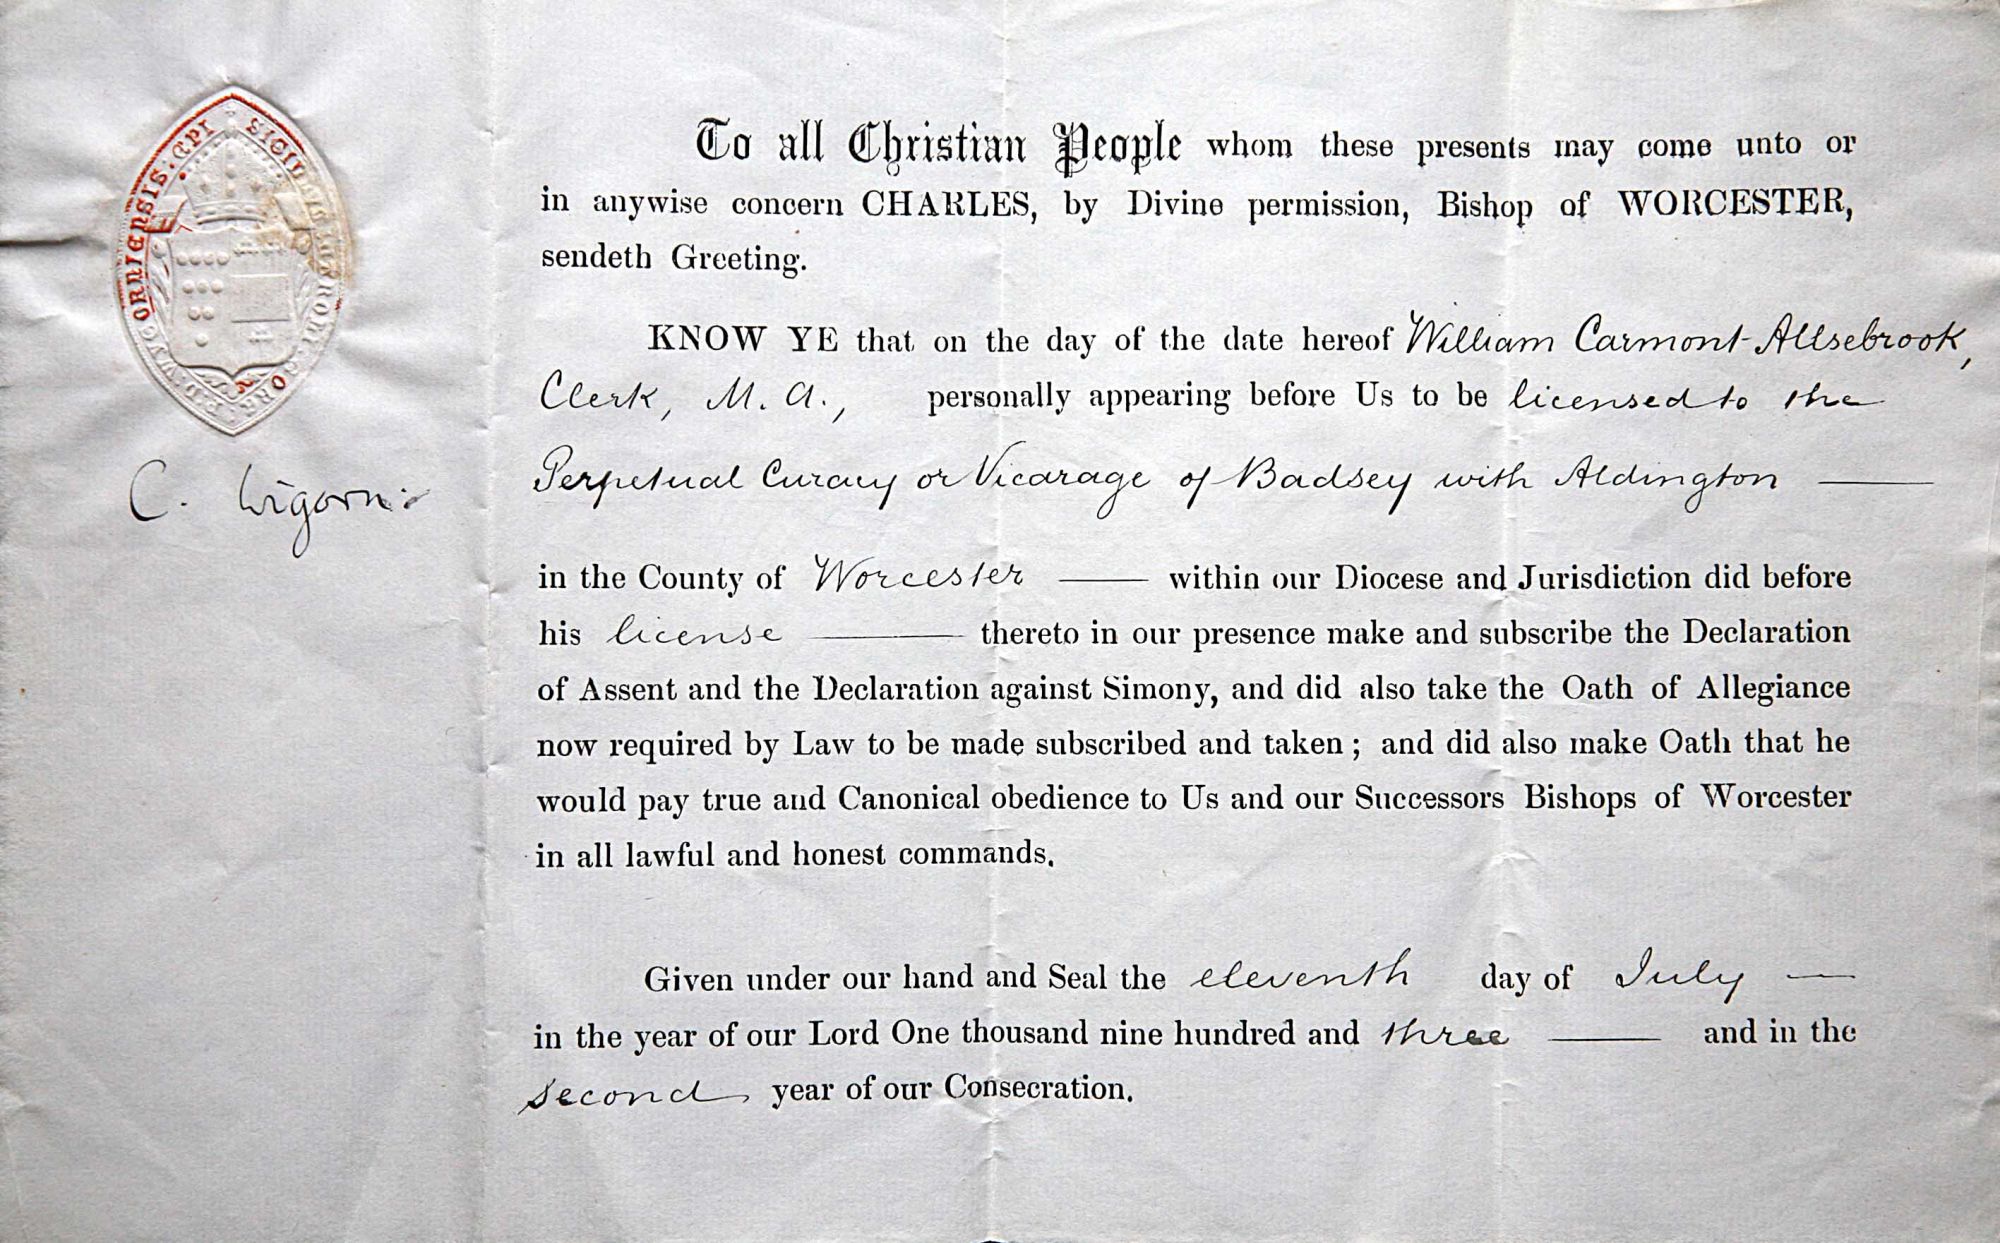 To all Christian People whom these presents may come unto or
in anywise concern CHARLES, by Divine permission, Bishop of WORCESTER,
sendeth Greeting.
KNOW YE that on the day of the date hereof William Carmont-Allsebrook,
Clerk, M. A., personally appearing before Us to be licensed to the
Perpetual Curacy or Vicarage of Badsey with Aldington
in the County of Worcester within our Diocese and Jurisdiction did before
his license thereto in our presence make and subscribe the Declaration
of Assent and the Declaration against Simony, and did also take the Oath of Allegiance
now required by Law to be made subscribed and taken; and did also make Oath that he
would pay true and Canonical obedience to Us and our Successors Bishops of Worcester
in all lawful and honest commands.
Given under our hand and Seal the eleventh day of July
in the year of our Lord One thousand nine hundred and three and in the
second year of our Consecration.
C. Wigorn: